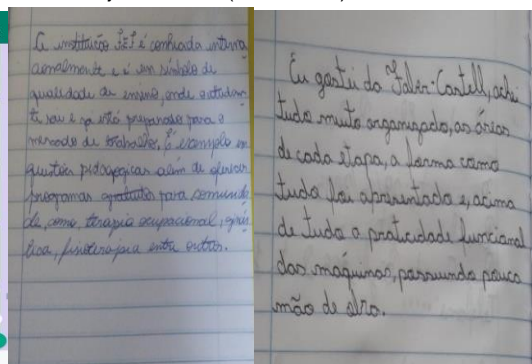 A instituição F.E.F é conhecida interna
cionalmente e é um símbolo de
qualidade de ensino, onde estudan
te sai e já está preparado para o
mercado de trabalho. É exemplo em
questões pedagógicas além de oferecer
programas gratuitos para comunida
de, como, terapia ocupacional,
fisioterapia entre outros.
Eu gostei da Faber-Castell, achei
tudo muito organizado, as áreas
de cada etapa, a forma como
tudo foi apresentado e, acima
de tudo a praticidade funcional
das máquinas, possuindo pouca
mão de obra.